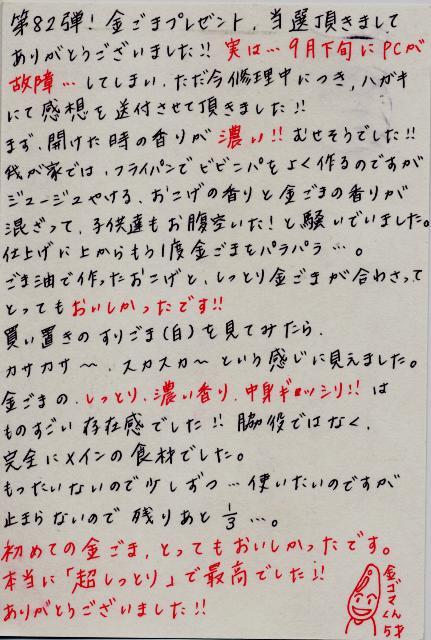 第82弾！金ごまプレゼント、当選頂きまして
ありがとうございました!! 実は…9月下旬にPCが
故障…してしまい、ただ今修理中につき、ハガキ
にて感想を送付させて頂きました!!
まず、開けた時の香りが濃い!! むせそうでした!!
我が家では、フライパンでビビンバをよく作るのですが
ジュージュやける、おこげの香りと金ごまの香りが
混ざって、子供達もお腹空いた!と騒いでいました。
仕上げに上からもう1度金ごまをパラパラ…。
ごま油で作ったおこげと、しっとり金ごまが合わさって
とってもおいしかったです!!
買い置きのすりごま(白)を見てみたら、
カサカサ〜、スカスカ〜という感じに見えました。
金ごまの、しっとり、濃い香り、中身ギッシリ!!は
ものすごい存在感でした!! 脇役ではなく、
完全にメインの食材でした。
もったいないので少しずつ…使いたいのですが
止まらないので残りあと1/3…。
初めての金ごま、とってもおいしかったです。
本当に「超しっとり」で最高でした!!
ありがとうございました!!
金ゴマくん
5才